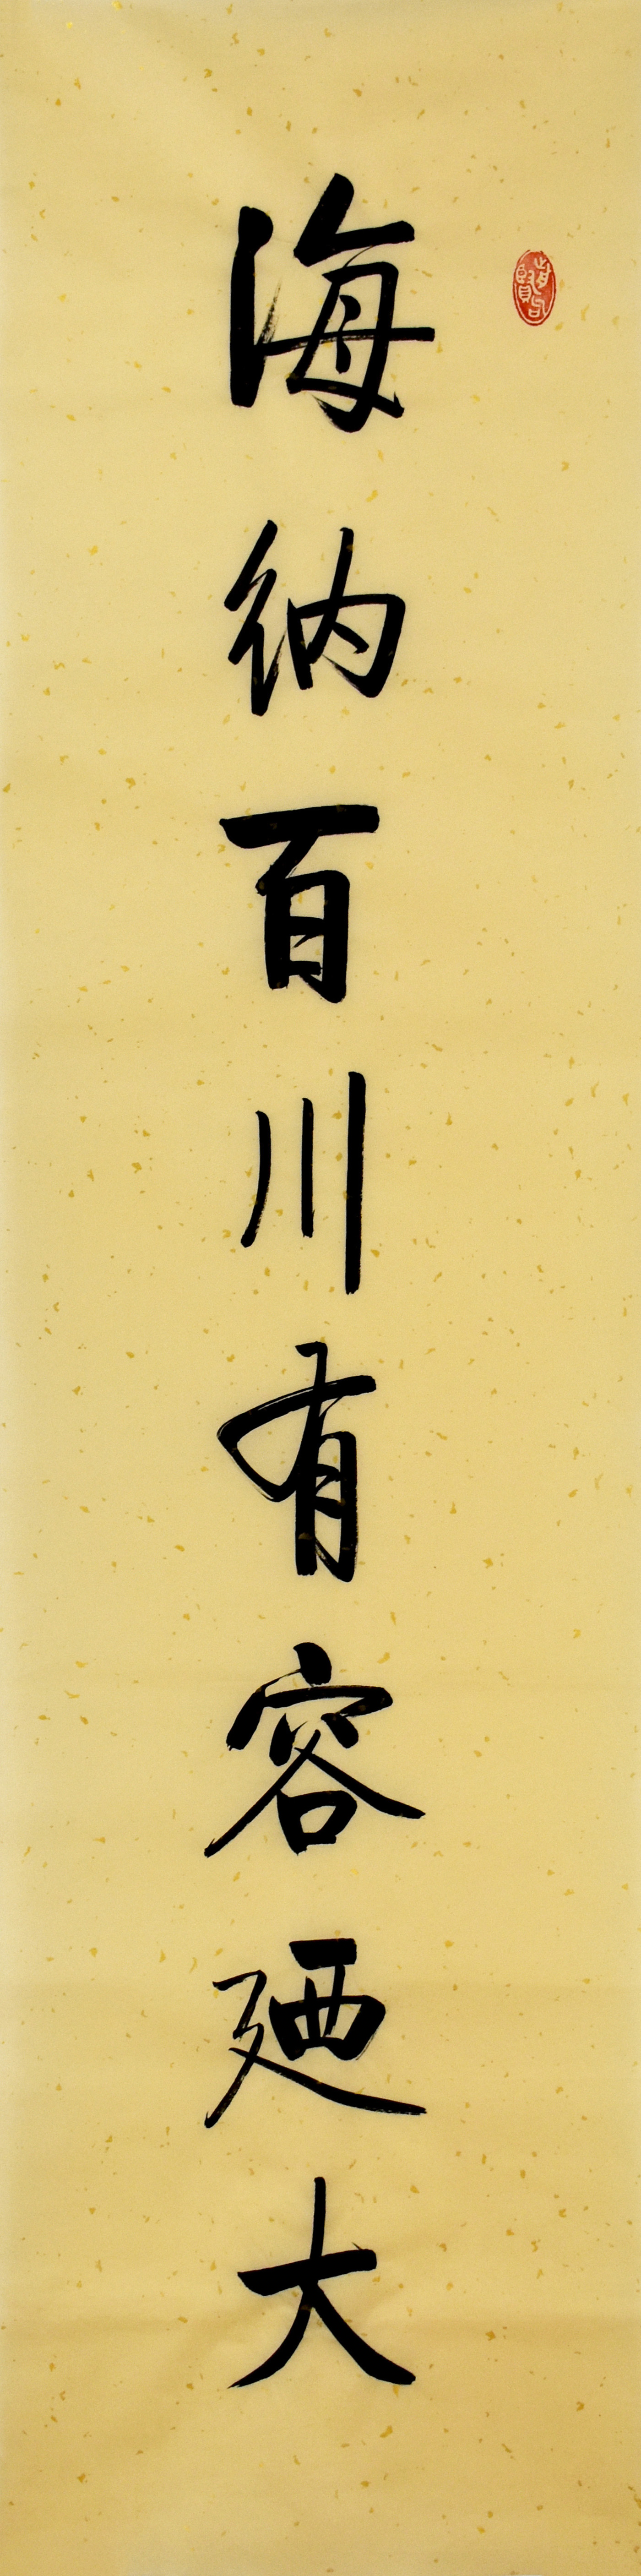 海纳百川有容廼大